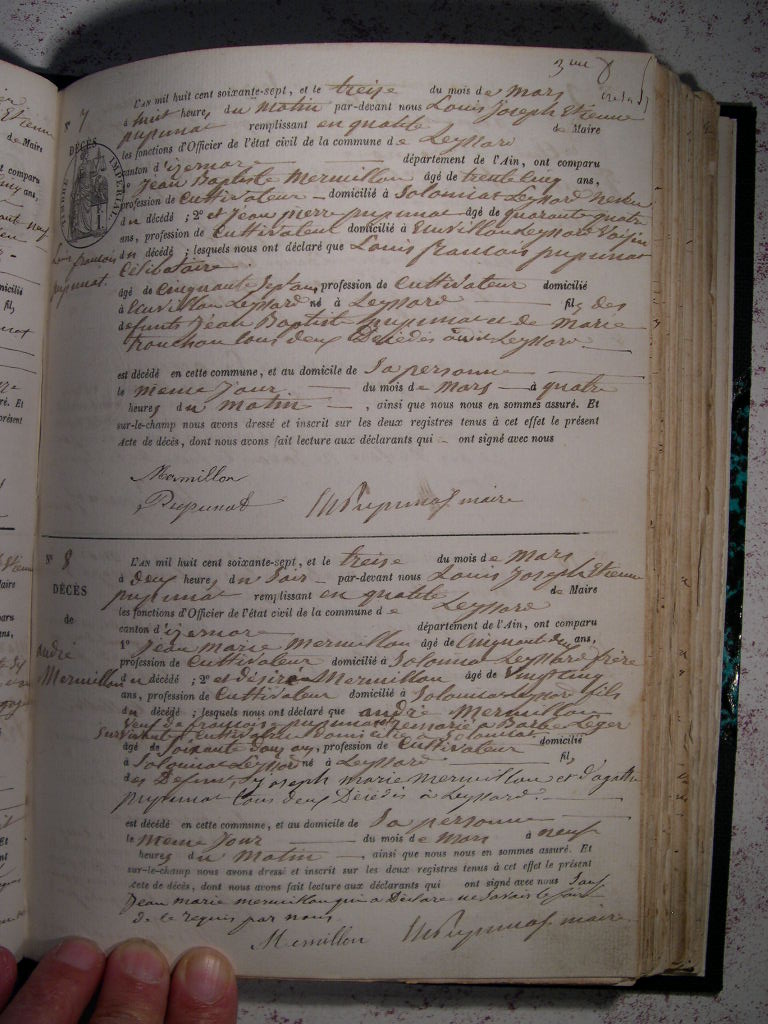 3me
N° 7
DÉCÈS
TIMBRE IMPÉRIAL
Louis francois
pupunat.
L'AN mil huit cent soixante-sept, et le treise du mois de mars
à huit heures du matin par-devant nous Louis Joseph Etienne
pupunat remplissant en qualité de Maire
les fonctions d'Officier de l'état civil de la commune de Leyssard
canton d'izernore département de l'Ain, ont comparu
1° Jean Baptiste Mermillon âgé de trente cinq ans,
profession de Cultivateur domicilié à Solomiat Leyssard neveu
du décédé ; 2° et Jean pierre pupunat âgé de quarante quatre
ans, profession de Cultivateur domicilié à Leyssard Voisin
du décédé ; lesquels nous ont déclaré que Louis francois pupunat
Célibataire
âgé de Cinquante sept ans, profession de Cultivateur domicilié
à Leyssard né à Leyssard fils des
defunts Jean Baptiste pupunat et de Marie
tous deux Décédés audit Leyssard
est décédé en cette commune, et au domicile de Sa personne
le meme Jour du mois de Mars à quatre
heures du matin , ainsi que nous nous en sommes assuré. Et
sur-le-champ nous avons dressé et inscrit sur les deux registres tenus à cet effet le présent
Acte de décès, dont nous avons fait lecture aux déclarants qui ont signé avec nous
Mermillon
Pupunat Pupunat maire
N° 8
DÉCÈS
de
andré
Mermillon
L'AN mil huit cent soixante-sept, et le treise du mois de mars
à Deux heures du Soir par-devant nous Louis Joseph Etienne
pupunat remplissant en qualité de Maire
les fonctions d'Officier de l'état civil de la commune de Leyssard
canton d'izernore département de l'Ain, ont comparu
1° Jean Marie Mermillon âgé de Cinquante deux ans,
profession de Cultivateur domicilié à Solomiat Leyssard frère
du décédé ; 2° et désiré Mermillon âgé de Vingt Cinq
ans, profession de Cultivateur domicilié à Solomiat Leyssard fils
du décédé ; lesquels nous ont déclaré que andré Mermillon
veuf de francoise pupunat remarié à Barbe Leger
survivante Cultivatrice domiciliée à Solomiat
âgé de Soixante ans, profession de Cultivateur domicilié
à Solomiat Leyssard né à Leyssard fils
des Defunts Joseph marie mermillon et d'agathe
pupunat tous deux Décédés à Leyssard.
est décédé en cette commune, et au domicile de Sa personne
le meme Jour du mois de Mars à neuf
heures du matin , ainsi que nous nous en sommes assuré. Et
sur-le-champ nous avons dressé et inscrit sur les deux registres tenus à cet effet le présent
Acte de décès, dont nous avons fait lecture aux déclarants qui ont signé avec nous Sauf
Jean marie mermillon qui a Déclaré ne savoir le faire
de ce requis par nous
Mermillon Pupunat maire